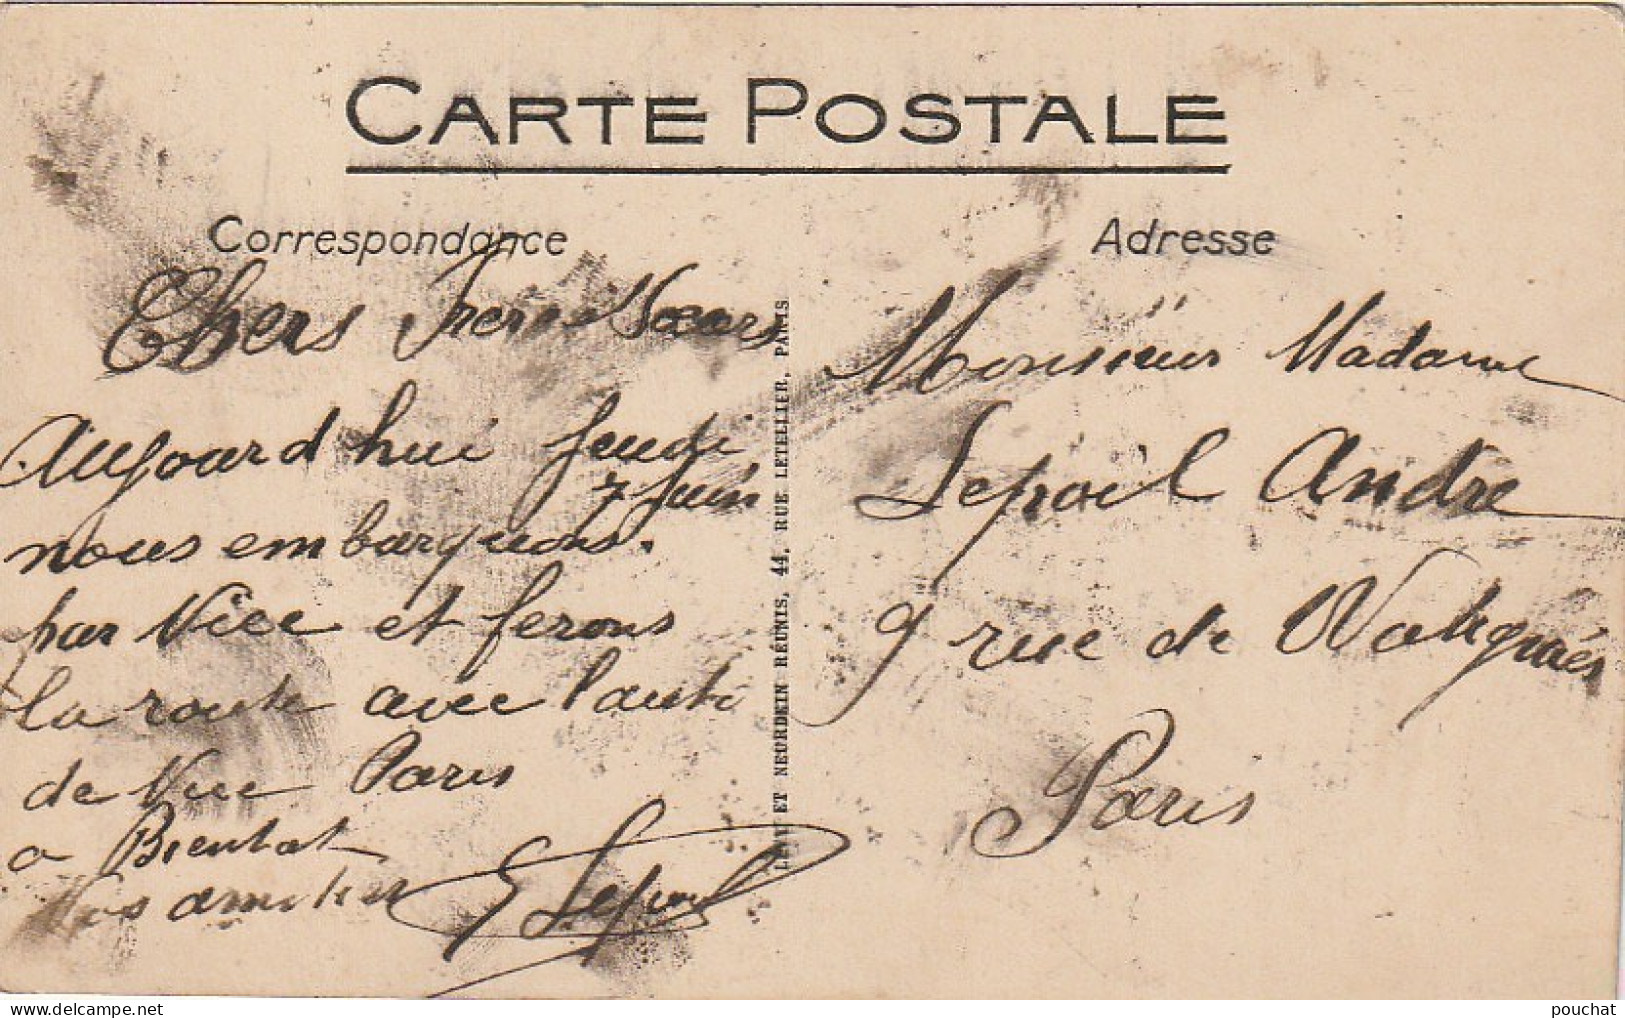 CARTE POSTALE
Correspondance
Adresse
Chers Frere e Sœurs
Aujourd hui Jeudi
7 Juin
nous embarquons.
par Nice et ferons
la route avec l'auto
de Nice Paris
a Bientot
Nos amities
G Lepoil
LEVY ET NEURDEIN RÉUNIS, 44, RUE LETELLIER, PARIS
Monsieur Madame
Lepoil Andre
9 rue de
Paris
pouchat